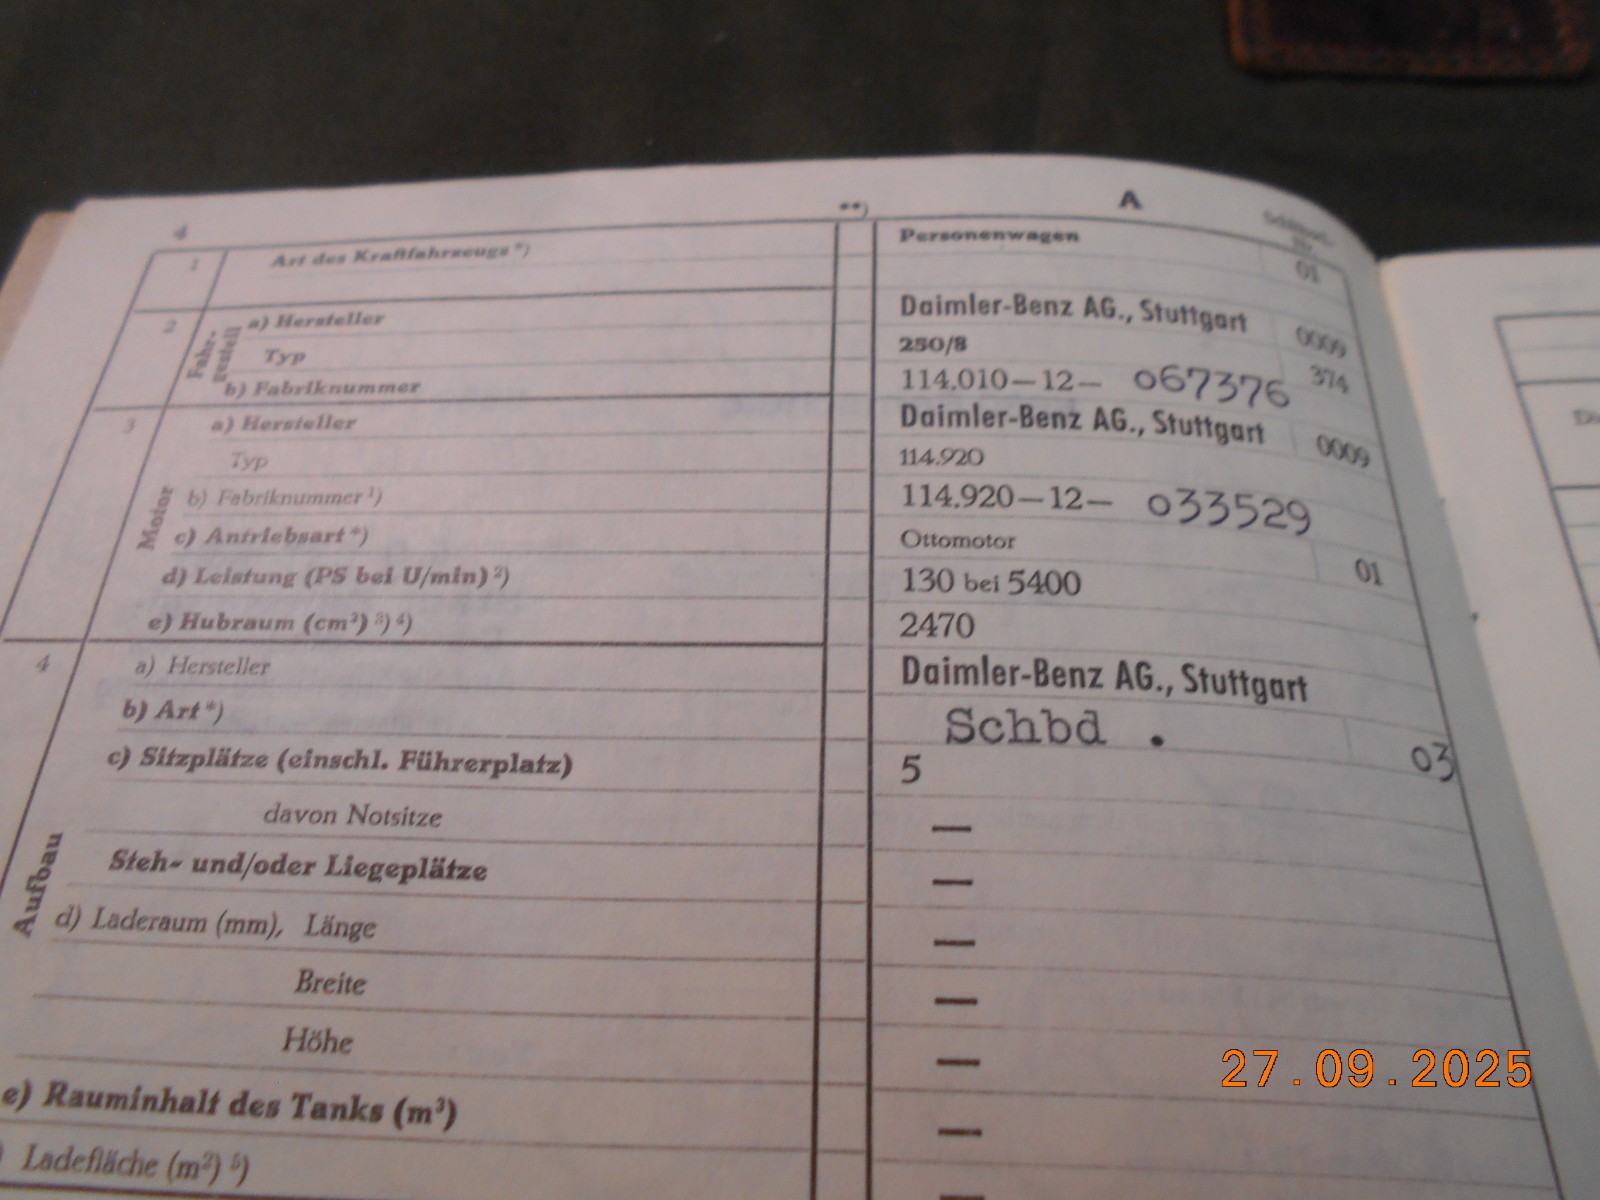 4 **) A
1 Art des Kraftfahrzeugs *) Personenwagen 01
2 Fahr-gestell a) Hersteller Daimler-Benz AG., Stuttgart 0009
Typ 250/8 374
b) Fabriknummer 114.010—12— 067376
3 Motor a) Hersteller Daimler-Benz AG., Stuttgart 0009
Typ 114.920
b) Fabriknummer ¹) 114.920—12— 033529
c) Antriebsart *) Ottomotor 01
d) Leistung (PS bei U/min) ²) 130 bei 5400
e) Hubraum (cm³) ³) ⁴) 2470
4 Aufbau a) Hersteller Daimler-Benz AG., Stuttgart
b) Art *) Schbd . 03
c) Sitzplätze (einschl. Führerplatz) 5
davon Notsitze —
Steh- und/oder Liegeplätze —
d) Laderaum (mm), Länge —
Breite —
Höhe —
e) Rauminhalt des Tanks (m³) —
) Ladefläche (m²) ⁵) —
27.09.2025